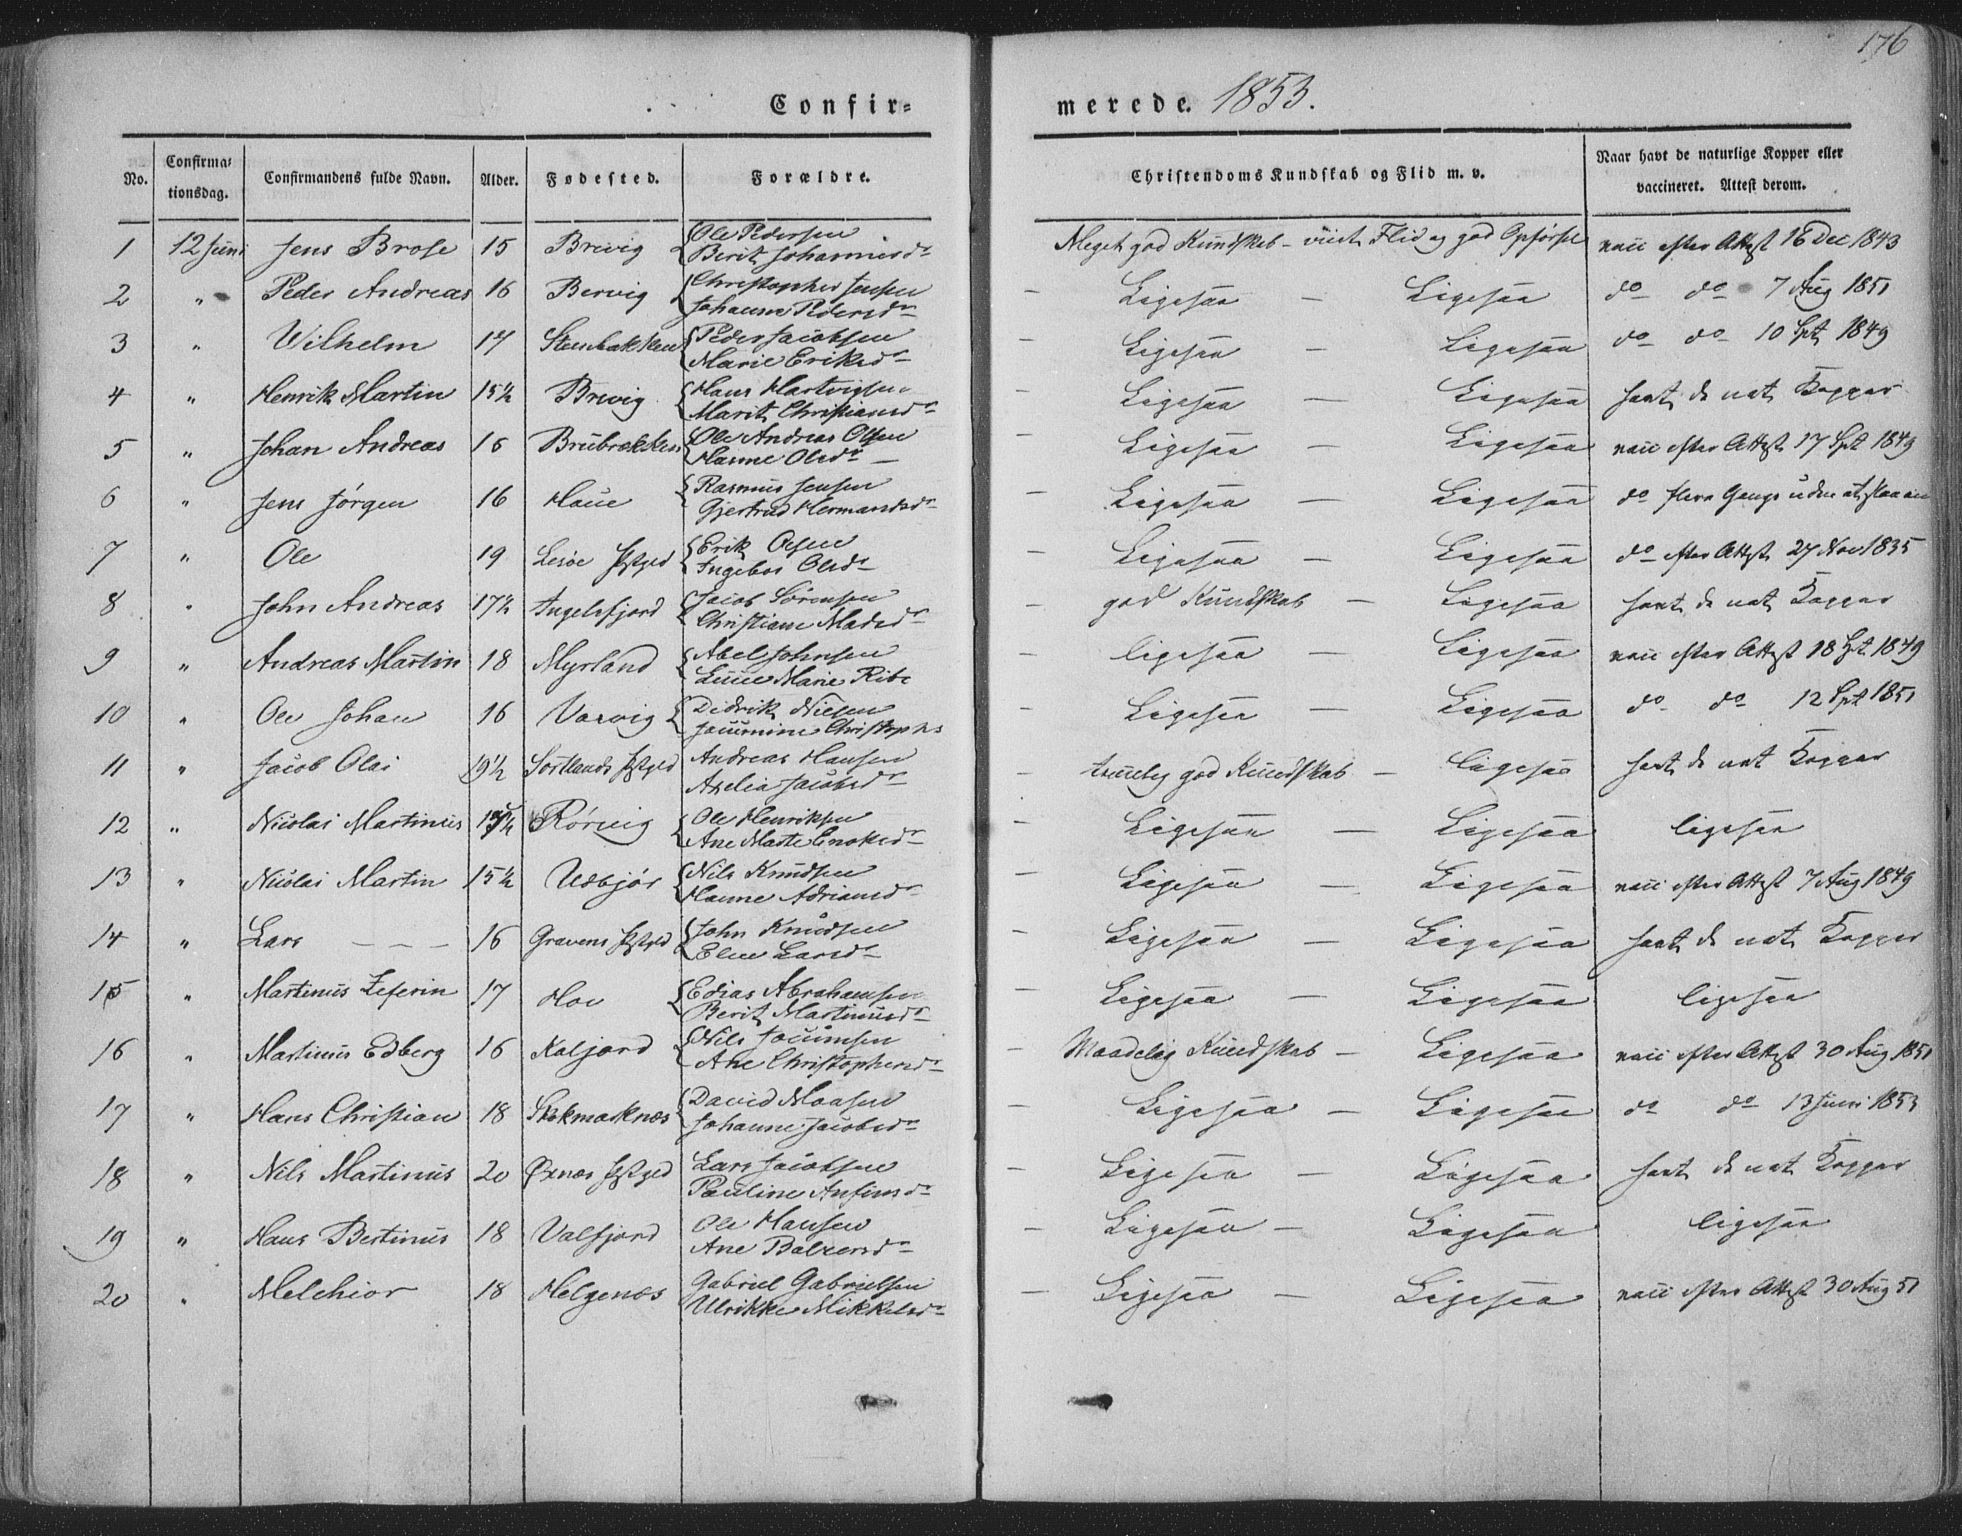 176
Confirmerede. 1853.
No. Confirmationsdag. Confirmandens fulde Navn. Alder. Fødested. Forældre. Christendoms Kundskab og Flid m. v. Naar havt de naturlige Kopper eller vaccineret. Attest derom.
1 12 Juni Jens Brose 15 Brevig Ole Pedersen Meget god Kundskab - viist Flid og god Opførsel vacc efter Attest 16 Dec 1843
Berit Johannesdr
2 " Peder Andreas 16 Bervig Christopher Jensen - Ligesaa - Ligesaa do do 7 Aug 1851
Johanne Pedersdr
3 " Wilhelm 17 Steenbakken Peder Jacobsen - Ligesaa - Ligesaa do do 10 Spt 1849
Marie Eriksdr
4 " Henrik Martin 15½ Brevig Hans Hartvigsen - Ligesaa - Ligesaa havt de nat Kopper
Marit Christiansdr
5 " Johan Andreas 16 Brubrekken Ole Andreas Olsen - Ligesaa - Ligesaa vacc efter Attest 17 Spt 1849
Hanne Olsdr
6 " Jens Jørgen 16 Haue Rasmus Jensen - Ligesaa - Ligesaa do flere Gange uden at slaae an
Gjertrud Hermandsdr
7 " Ole 19 Lesøe Pstgd Erik Olsen - Ligesaa - Ligesaa do efter Attest 27 Nov 1835
Ingebor Olsdr
8 " John Andreas 17½ Ingelsfjord Jacob Sørensen - god Kundskab - Ligesaa havt de nat Kopper
Christiane Madsdr
9 " Andreas Martin 18 Myrland Abel Johnsen - ligesaa - Ligesaa vacc efter Attest 18 Spt 1849
Marie Ribe
10 " Ole Johan 16 Vasvig Didrik Nilsen - Ligesaa - Ligesaa do do 12 Spt 1851
Christophs
11 " Jacob Olai 19½ Sortlands Pstgd Andreas Hansen - temmelig god Kundskab - ligesaa havt de nat Kopper
Axelia Jacobsdr
12 " Nicolai Martinus ½ Rørvig Ole Henriksen - Ligesaa - Ligesaa ligesaa
Ane Marte Enoksdr
13 " Nicolai Martin 15½ Udbjør Nils Knudsen - Ligesaa - Ligesaa vacc efter Attest 7 Aug 1849
Hanne Adriansdr
14 " Lars - - - 16 Gravens Pstgd John Knudsen - Ligesaa - Ligesaa havt de nat Kopper
Elen Larsdr
15 " Martinus Zeferin 17 Hov Edias Abrahamsen - Ligesaa - Ligesaa ligesaa
Berit Martinusdr
16 " Martinus Edberg 16 Kaljord Nils Joснimsen - Maadelig Kundskab - Ligesaa vacc efter Attest 30 Aug 1851
Ane Christophersdr
17 " Hans Christian 18 Stokmarknæs David Monsen - Ligesaa - Ligesaa do do 13 Juni 1853
Johanne Jacobsdr
18 " Nils Martinus 20 Øxnæs Pstgd Lars Jacobsen - Ligesaa - Ligesaa havt de nat Kopper
Pauline Anfinsdr
19 " Hans Bertinus 18 Valfjord Ole Hansen - Ligesaa - Ligesaa ligesaa
Ane Balzersdr
20 " Melchior 18 Helgenæs Gabriel Gabrielsen - Ligesaa - Ligesaa vacc efter Attest 30 Aug 51
Ulrikke Mikkelsdr